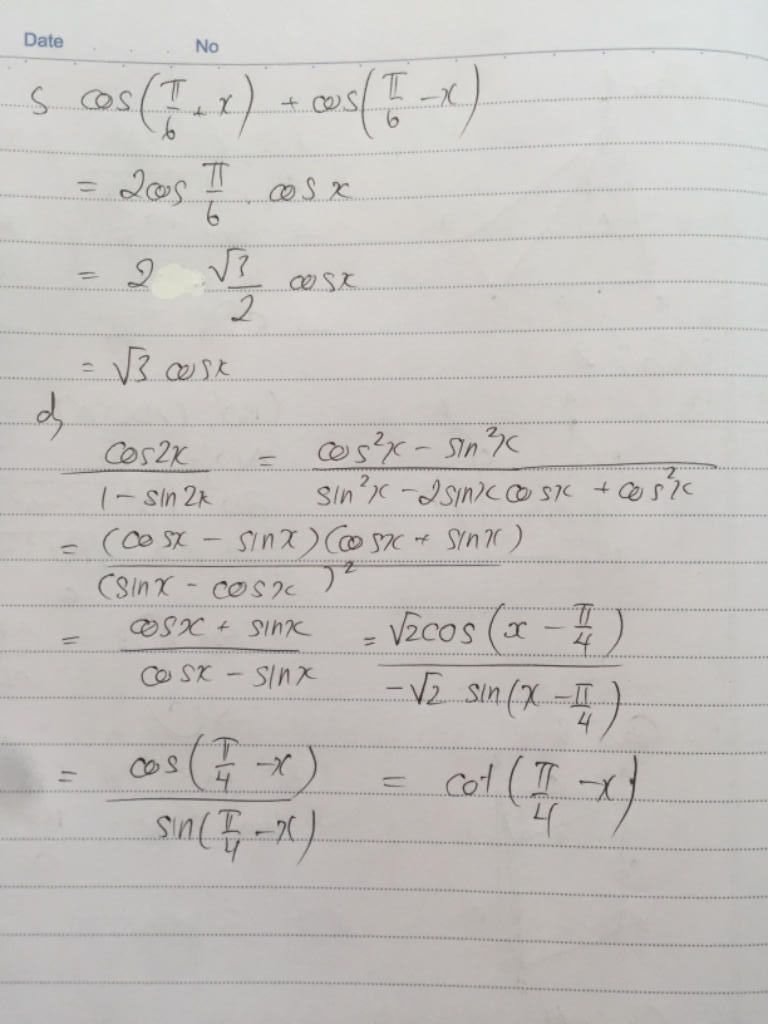 Date No
S cos(π/6 + x) + cos(π/6 - x)
= 2cos π/6 . cosx
= 2 √3/2 cosx
= √3 cosx
d,
cos2x / 1 - sin2x = cos²x - sin²x / sin²x - 2sinx cosx + cos²x
= (cosx - sinx)(cosx + sinx) / (sinx - cosx)²
= cosx + sinx / cosx - sinx = √2cos(x - π/4) / -√2 sin(x - π/4)
= cos(π/4 - x) / sin(π/4 - x) = cot(π/4 - x)